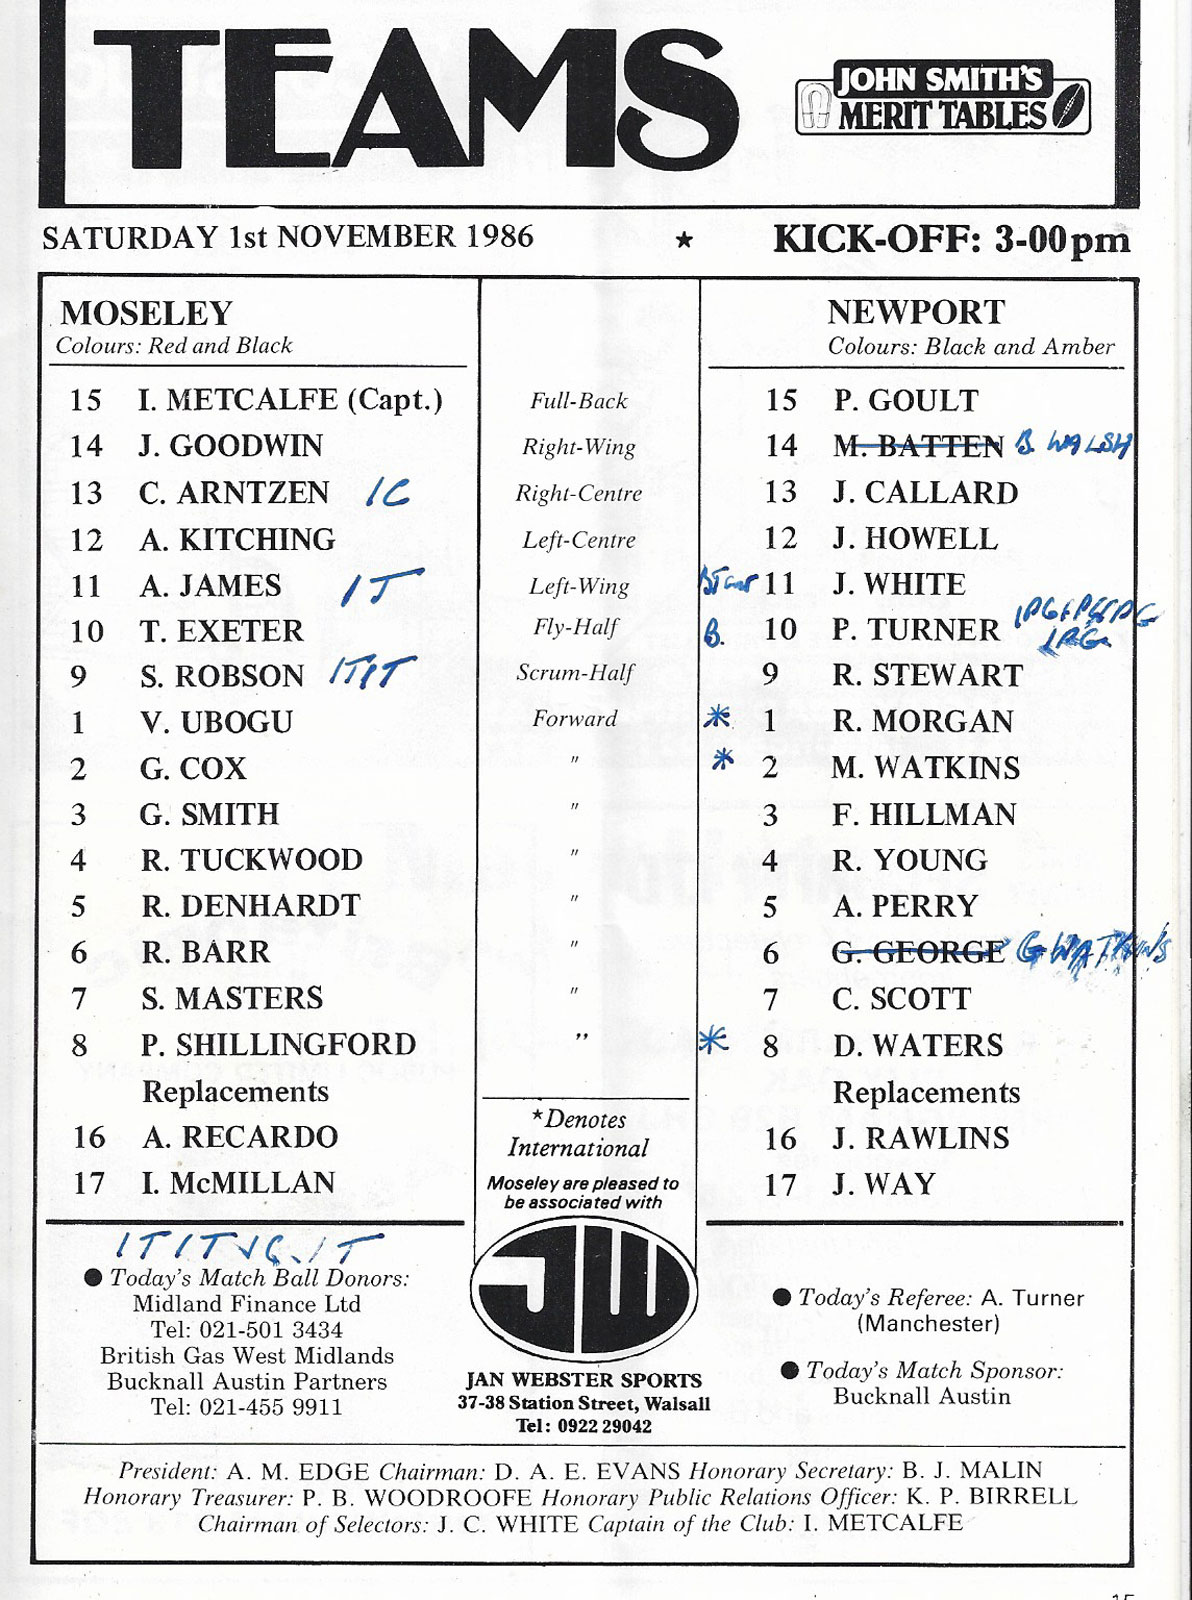 TEAMS
JOHN SMITH'S
MERIT TABLES
SATURDAY 1st NOVEMBER 1986 ★ KICK-OFF: 3-00pm
MOSELEY NEWPORT
Colours: Red and Black Colours: Black and Amber
15 I. METCALFE (Capt.) Full-Back 15 P. GOULT
14 J. GOODWIN Right-Wing 14 M. BATTEN B. WALSH
13 C. ARNTZEN 1C Right-Centre 13 J. CALLARD
12 A. KITCHING Left-Centre 12 J. HOWELL
11 A. JAMES 1T Left-Wing 11 J. WHITE
10 T. EXETER Fly-Half B. 10 P. TURNER 1PG 1PG 1PG
1PG
9 S. ROBSON 1T1T Scrum-Half 9 R. STEWART
1 V. UBOGU Forward * 1 R. MORGAN
2 G. COX " * 2 M. WATKINS
3 G. SMITH " 3 F. HILLMAN
4 R. TUCKWOOD " 4 R. YOUNG
5 R. DENHARDT " 5 A. PERRY
6 R. BARR " 6 G. GEORGE G WATKINS
7 S. MASTERS " 7 C. SCOTT
8 P. SHILLINGFORD " * 8 D. WATERS
Replacements Replacements
16 A. RECARDO 16 J. RAWLINS
17 I. McMILLAN 17 J. WAY
*Denotes
International
Moseley are pleased to
be associated with
JW
JAN WEBSTER SPORTS
37-38 Station Street, Walsall
Tel: 0922 29042
1T 1T 1C 1T
● Today's Match Ball Donors:
Midland Finance Ltd
Tel: 021-501 3434
British Gas West Midlands
Bucknall Austin Partners
Tel: 021-455 9911
● Today's Referee: A. Turner
(Manchester)
● Today's Match Sponsor:
Bucknall Austin
President: A. M. EDGE Chairman: D. A. E. EVANS Honorary Secretary: B. J. MALIN
Honorary Treasurer: P. B. WOODROOFE Honorary Public Relations Officer: K. P. BIRRELL
Chairman of Selectors: J. C. WHITE Captain of the Club: I. METCALFE